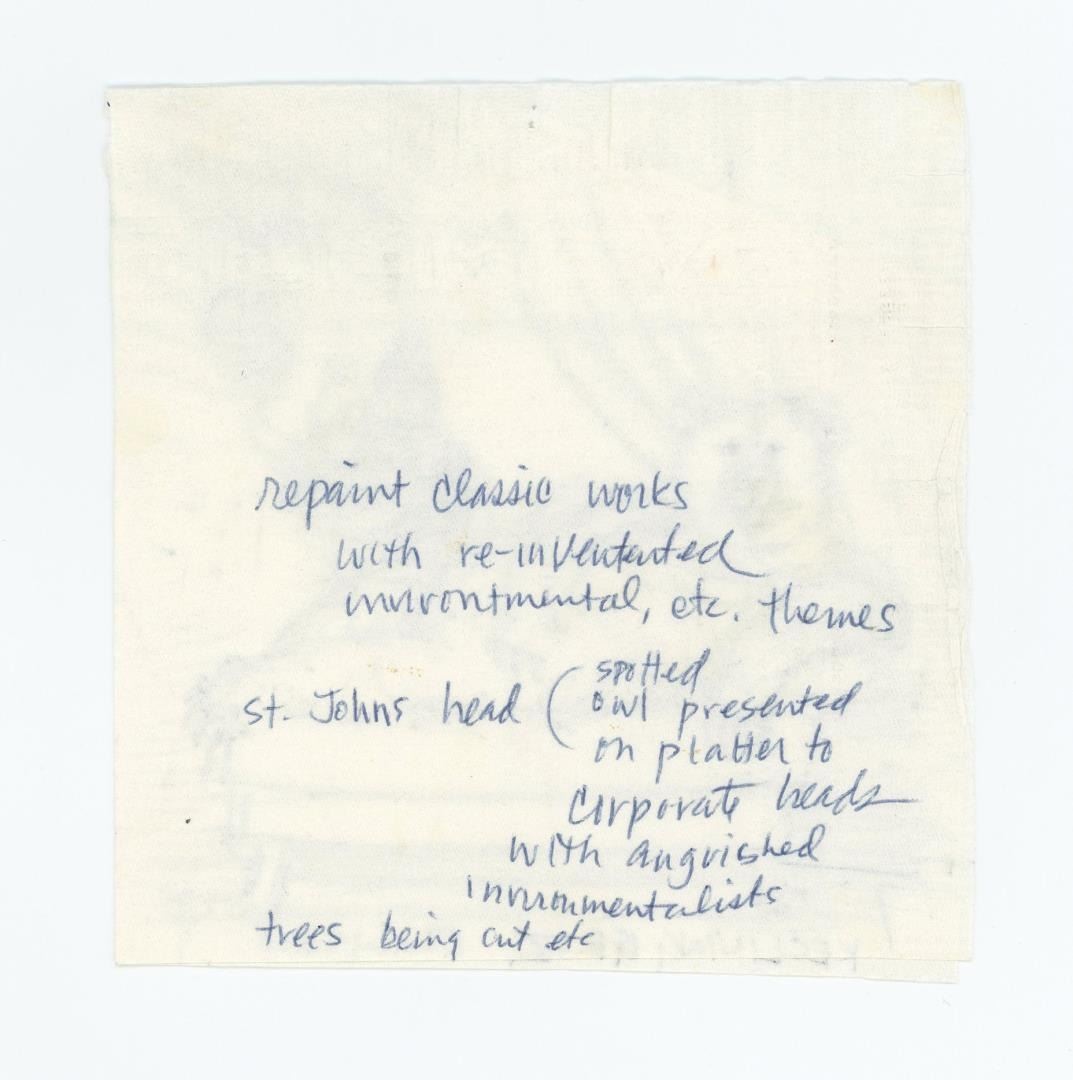 repaint classic works
with re-inventented
invirontmental, etc. themes
st. Johns head (spotted
owl presented
on platter to
corporate heads
with anguished
invironmentalists
trees being cut etc